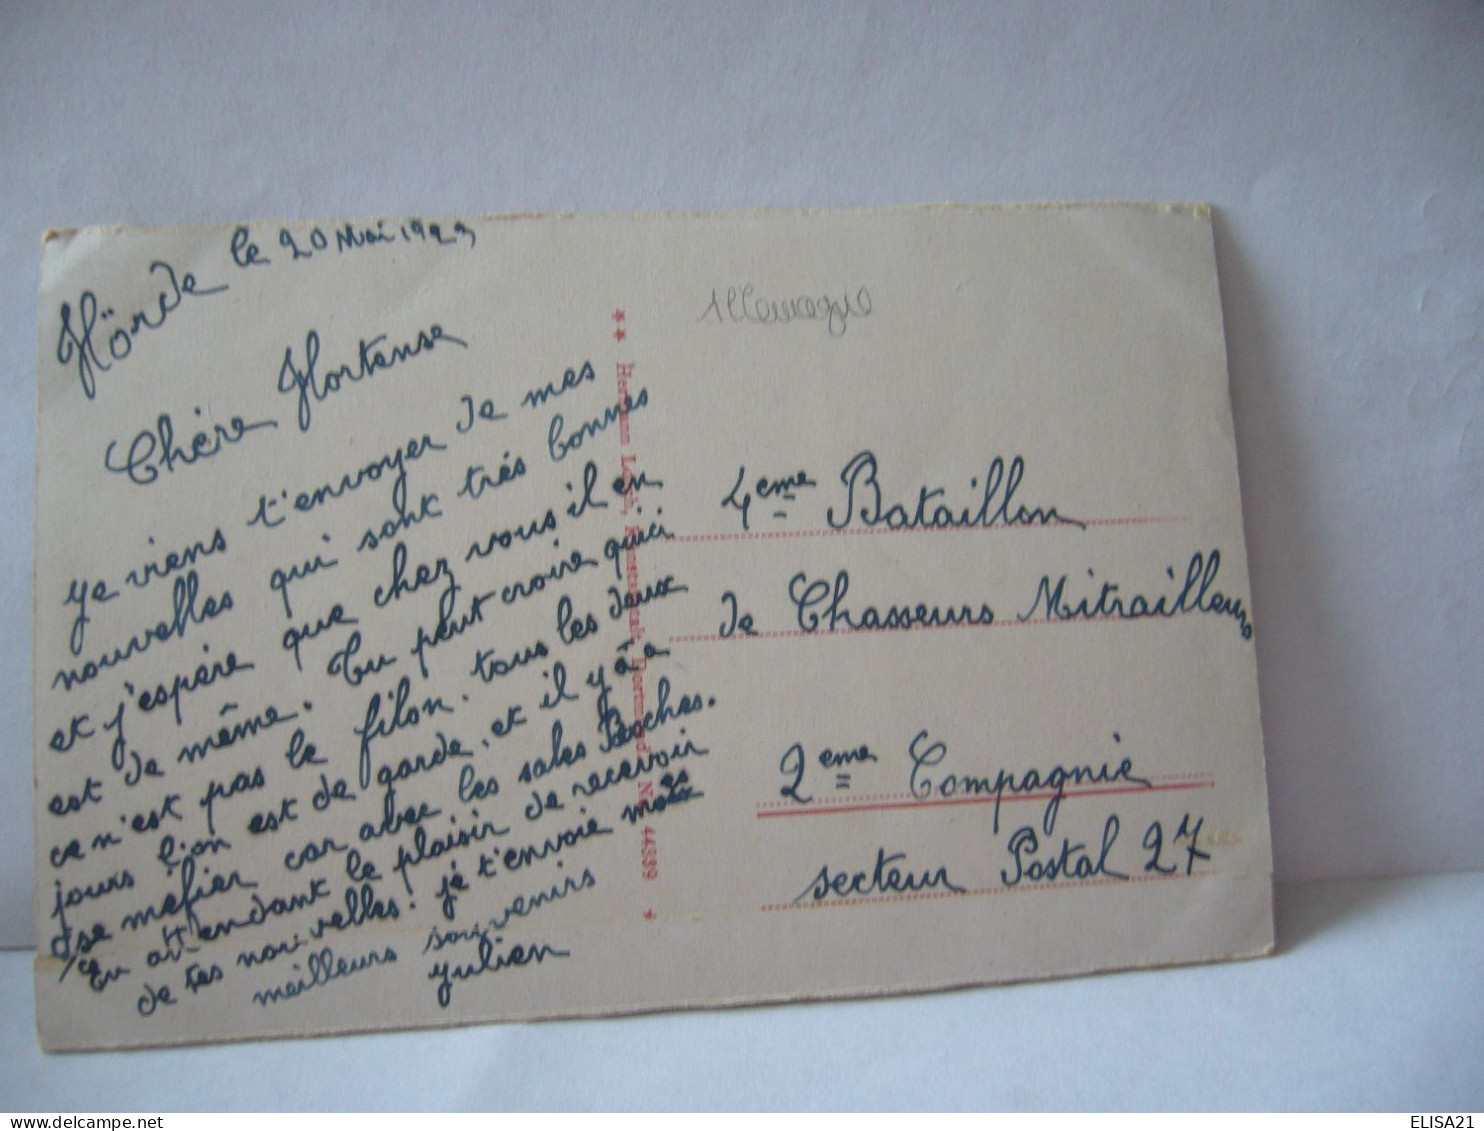 Hörde le 20 Mai 1923
Chère Hortense
Je viens t'envoyer de mes
nouvelles qui sont très bonnes
et j'espère que chez vous il en
est de même. Tu peut croire qu'ici
ce n'est pas le filon. tous les deux
jours l'on est de garde, et il y à a
se mefier car avec les sales Boches.
En attendant le plaisir de recevoir
de tes nouvelles. je t'envoie mes
meilleurs souvenirs
Julien
** Hermann Lorch, Kunstanstalt, Dortmund 44389 *
Allemagne
4eme Bataillon
de Chasseurs Mitrailleurs
2eme Compagnie
secteur Postal 27
ELISA21